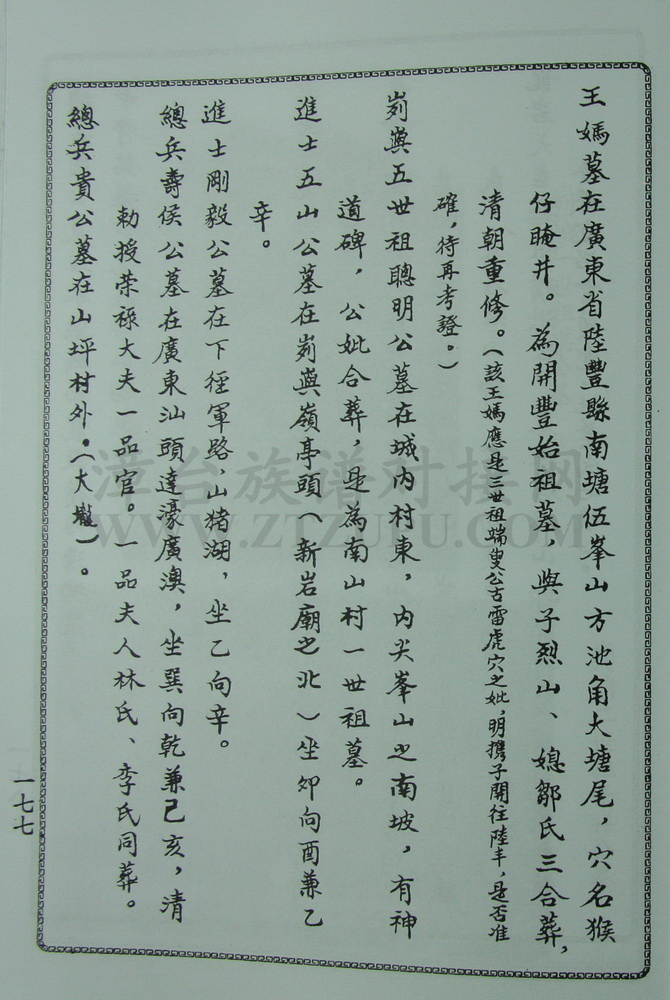 王媽墓在廣東省陸豐縣南塘伍峯山方池角大塘尾，穴名猴
仔晻井。為開豐始祖墓，與子烈山、媳鄒氏三合葬，
清朝重修。（該王媽應是三世祖端叟公古雷虎穴之妣，明携子開往陸丰，是否准
確，待再考證。）
峛嶼五世祖聰明公墓在城内村東，内尖峯山之南坡，有神
道碑，公妣合葬，是為南山村一世祖墓。
進士五山公墓在峛嶼嶺亭頭（新岩廟之北）坐卯向酉兼乙
辛。
進士剛毅公墓在下徑軍路，山猪湖，坐乙向辛。
總兵壽侯公墓在廣東汕頭達濠廣澳，坐巽向乾兼己亥，清
勅授荣禄大夫一品官。一品夫人林氏、李氏同葬。
總兵貴公墓在山坪村外。（大壠）。
一七七
漳台族谱对接网
WWW.ZTZUPU.COM